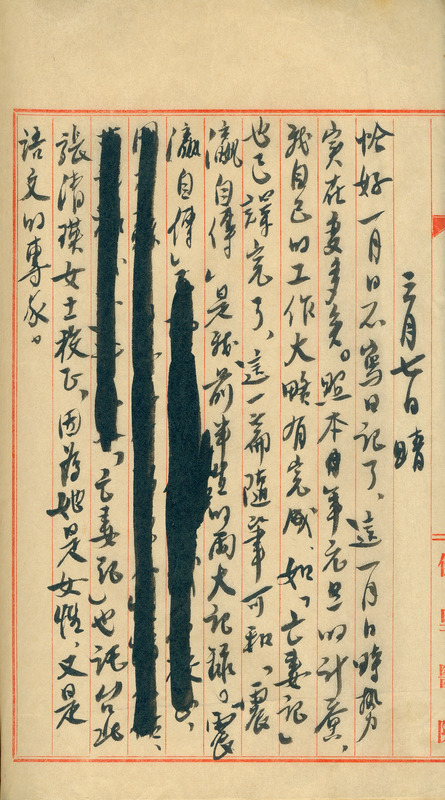 三月七日 晴
恰好一月日不寫日記了、這一月日時勢
實在變多矣。照本月年元旦的計畫、
我自己的工作大略有完成、如「亡妻記」
也已譯完了、這一篇隨筆可和「震
瀛自傳」是我前半生的兩大記錄。「震
瀛自傳」
、亡妻記」也託台北
張清瑛女士校正、因為她是女性、又是
語文的專家。